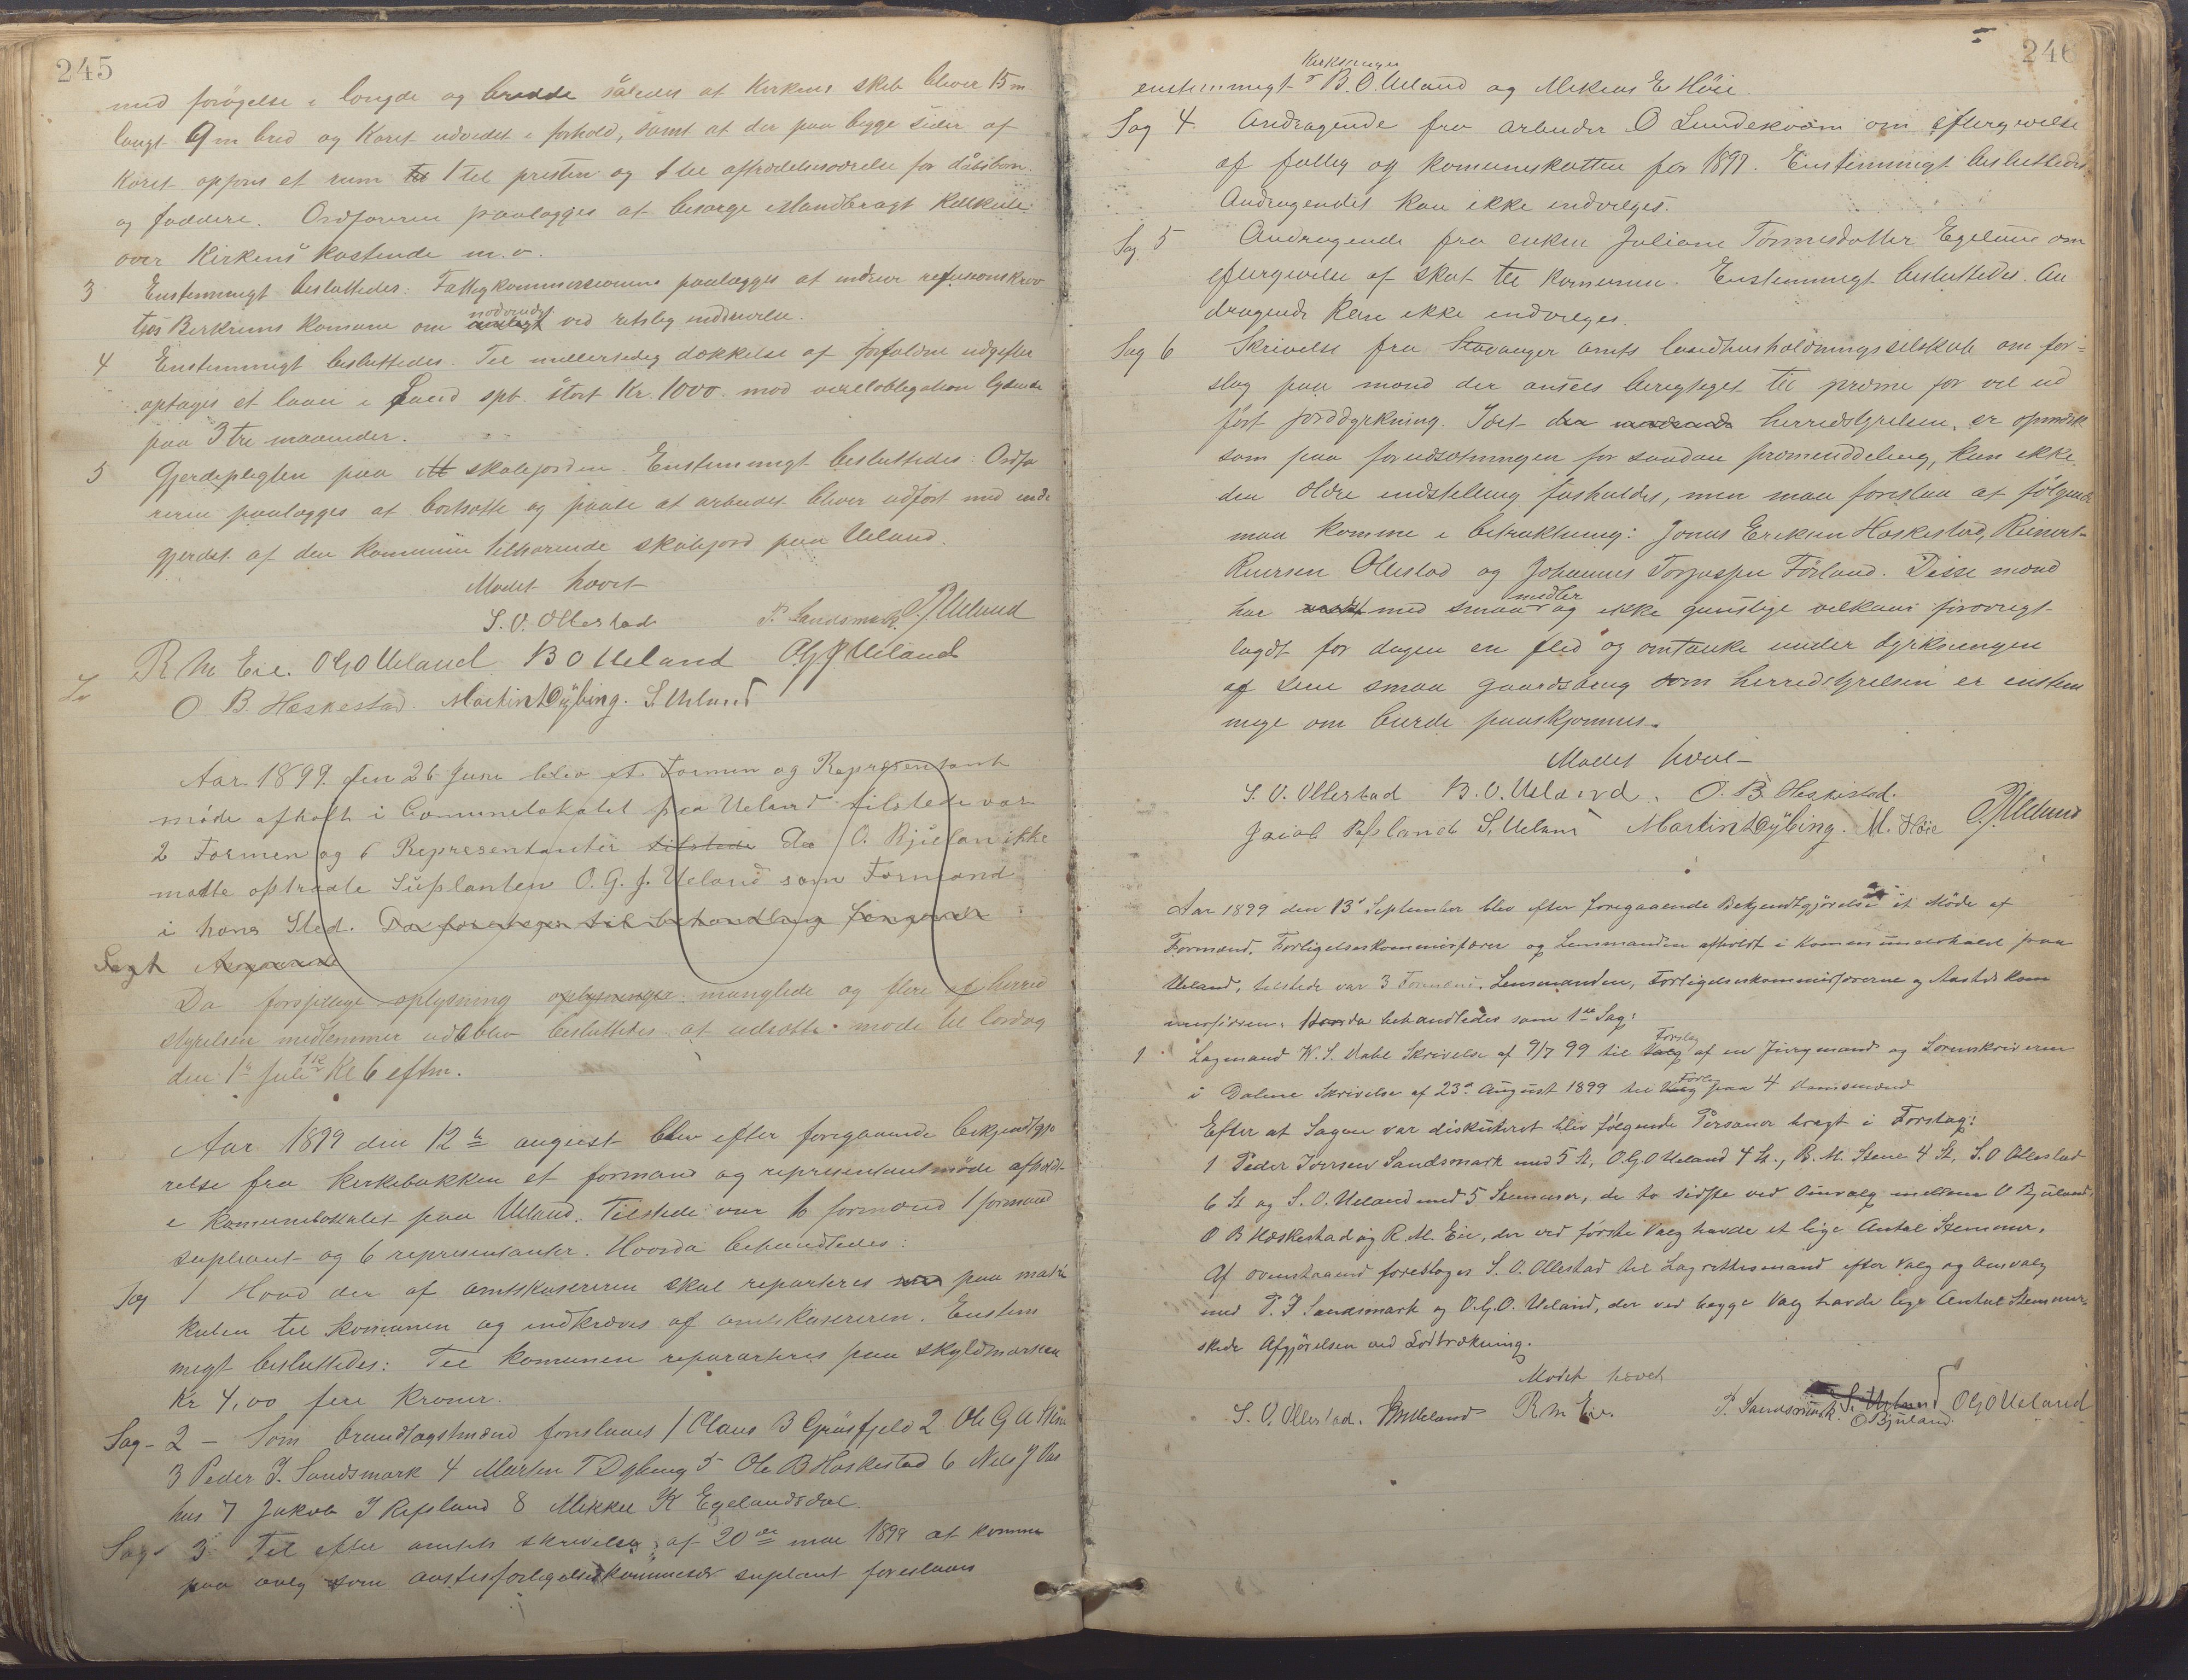 245
med forøgelse i længde og bredde således at Kirkens skib bliver 15 m
langt 9 m bred og Koret udvidet i forhold, samt at der paa begge sider af
Koret opføres et rum til 1 til presten og 1 til afkrædelsesværelse for dåbsbørn
og faddere. Ordføreren paalægges at besørge Mandbragt Kalkule
over Kirkens kostende m.v.
3 Enstemmigt besluttedes: Fattigkommissionens paalægges at inddrive refusionskrav
hos Berkrims komune om nødvendigt ved retslig inddrivelse.
4 Enstemmigt besluttedes. Til midlertidig dækkelse af forfaldne udgifter
optages et laan i Lund spb. stort Kr. 1000 mod vexelobligation lydende
paa 3 tre maaneder.
5 Gjerdepligten paa skolejorden. Enstemmigt besluttedes: Ordfø
reren paalægges at bortsætte og paase at arbeidet bliver udført med inde
gjerdet af den komunen tilhørende skolejord paa Ueland.
Mødet hævet
S. O. Ollestad P. Sandsmark O J Ueland
R M Eie. O G O Ueland B O Ueland O. G. J. Ueland
O. B. Hæskestad. Martin T Dybing. S. Ueland
Aar 1899 den 26 Juni blev et Formen og Representant
møde afholt i Comunelokalet paa Ueland tilstede var
2 Formen og 6 Representanter tilstede da O. Bjuland ikke
møtte optraadte Suplanten O. G. J. Ueland som Formand
i hans Sted. Da foretoges til behandling følgende
Sagh
Da forsjellige oplysning oplysninger manglede og flere af herred
styrelsen medlemmer udeblev besluttedes at udsætte møde til lørdag
den 1ste Juli Kl 6 eftm.
Aar 1899 den 12te august blev efter foregaaende bekjendtgjø
relse fra kirkebakken et formand og representantmøde afholdt
i komunelokalet paa Ueland. Tilstede var formænd 1 formand
supleant og 6 representanter. Hvorda behandledes:
Sag 1 Hvad der af amtskasereren skal reparteres paa matri
kulen til komunen og indkræves af amtskasereren. Enstem
migt besluttedes: Til komunen reparteres paa skyldmarken
Kr 4,00 fire kroner.
Sag - 2 - Som Brandtagstmænd foreslaaes 1 Olaus B Grøsfjeld 2 Ole G A Stene
3 Peder I. Sandsmark 4 Marten T Dybing 5 Ole B Hæskestad 6 Nils J Vas
hus 7 Jakob I Refsland 8 Mikkel K Egelandsdal.
Sag 3 Til efter amtets skrivelse af 20de mai 1899 at komme
paa valg som aastedsforligelseskommisær suplant foreslaaes
246
Kirksanger
enstemmigt B. O. Ueland og Mikias E Høie.
Sag 4. Andragende fra arbeider O Lundekvam om eftergivelse
af fattig og komuneskatten for 1899. Enstemmigt besluttedes
Andragendet kan ikke indvilges.
Sag 5 Andragende fra enken Juliane Tønnesdatter Egeland om
eftergivelse af skat til komunen. Enstemmigt besluttedes. An
dragende kan ikke indvilges.
Sag 6 Skrivelse fra Stavanger amts landhusholdningsselskab om for=
slag paa mænd der ansees berigtiget til præmie for vel ud
ført jorddyrkning. Idet herredstyrelsen, er opmærk
som paa forudsætningen for saadan præmieuddeling, kan ikke
den ældre indstilling fasholdes, men man foreslaa at følgende
maa komme i betraktning: Jonas Eriksen Hæskestad, Reinert
Reiersen Ollestad og Johannes Torjussen Førland. Disse mænd
har med smaa midler og ikke gunstige velkaar forøvrigt
lagdt for dagen en flid og omtanke under dyrkningen
af sine smaa gaardsbrug som herredstyrelsen er enstem
mige om burde paaskjønnes.
Mødet hævet
S. O. Ollestad B. O. Ueland. O. B. Hæskestad.
Jacob Refsland S. Ueland Martin T Dybing. M. Høie O J Ueland
Aar 1899 den 13de September blev efter foregaaende Bekjendtgjørelse et Møde af
Formænd, Forligelseskommissærer og Lensmanden afholdt i Kommunelokalet paa
Ueland, tilstede var 3 Formænd, Lensmanden, Forligelseskommissærerne og Aastedskom
missæren. Hvorda behandledes som 1ste Sag:
1 Lagmand W. S. Dahl Skrivelse af 9/7 99 til Forslag af en Jurymand og Sorenskriveren
i Dalene Skrivelse af 23de August 1899 til Forslag paa 4 Domsmænd
Efter at Sagen var diskuteret blev følgende Personer bragt i Forslag:
1 Peder Iversen Sandsmark med 5 St, O. G. O Ueland 4 St., B. M. Stene 4 St, S. O Ollestad
6 St og S. O. Ueland med 5 Stemmer, de to sidste ved Omvalg mellem O Bjuland,
O B Hæskestad og R. M. Eie, der ved første Valg havde et lige Antal Stemmer.
Af ovenstaaend foresloges S. O. Ollestad til Lagrettesmand efter Valg og omvalg
med P. I. Sandsmark og O. G. O. Ueland, der ved begge Valg havde lige Antal Stemmer
skede Afgjørelsen ved Lodtrækning.
Mødet hævet
S. O. Ollestad. Ueland R M Eie. P. Sandsmark. S. Ueland O G O Ueland
O Bjuland